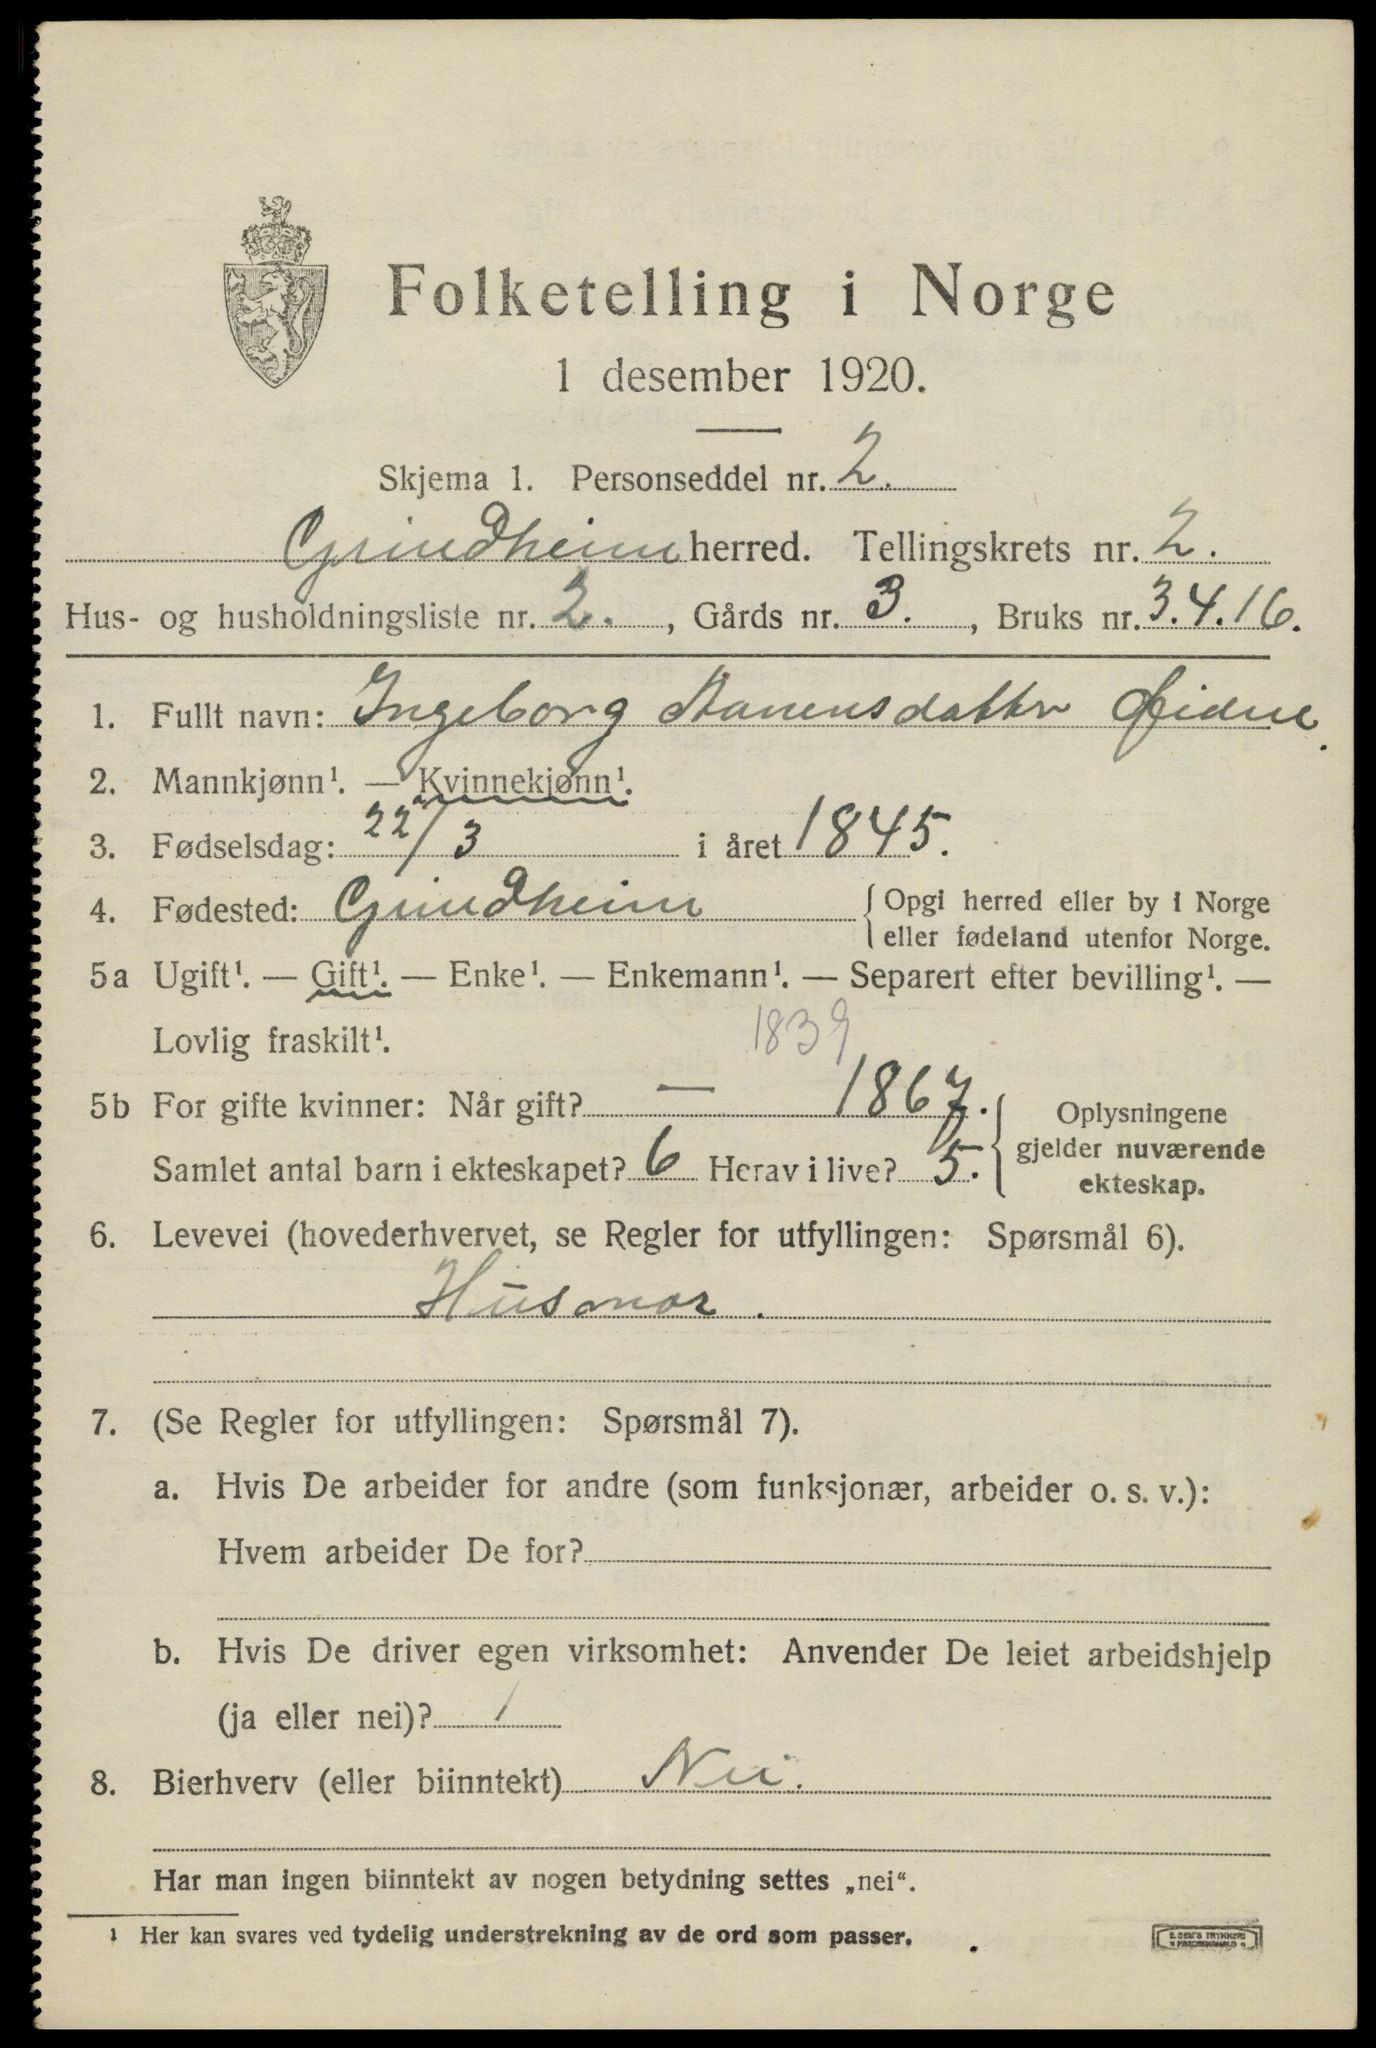 Folketelling i Norge
1 desember 1920.
Skjema 1. Personseddel nr. 2.
Grindheim herred. Tellingskrets nr. 2.
Hus- og husholdningsliste nr. 2., Gårds nr. 3., Bruks nr. 3.4.16.
1. Fullt navn: Ingeborg Aanensdatter Øidne.
2. Mannkjønn¹. — Kvinnekjønn¹.
3. Fødselsdag: 22/3 i året 1845.
4. Fødested: Grindheim { Opgi herred eller by i Norge
eller fødeland utenfor Norge.
5a Ugift¹. — Gift¹. — Enke¹. — Enkemann¹. — Separert efter bevilling¹. —
Lovlig fraskilt¹.
1839
5b For gifte kvinner: Når gift? — 1867. } Oplysningene
gjelder nuværende
ekteskap.
Samlet antal barn i ekteskapet? 6 Herav i live? 5.
6. Levevei (hovederhvervet, se Regler for utfyllingen: Spørsmål 6).
Husmor.
7. (Se Regler for utfyllingen: Spørsmål 7).
a. Hvis De arbeider for andre (som funksjonær, arbeider o. s. v.):
Hvem arbeider De for?
b. Hvis De driver egen virksomhet: Anvender De leiet arbeidshjelp
(ja eller nei)? /
8. Bierhverv (eller biinntekt) Nei.
Har man ingen biinntekt av nogen betydning settes „nei“.
¹ Her kan svares ved tydelig understrekning av de ord som passer.